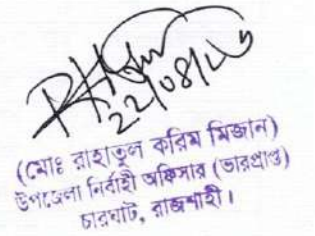 22/08/২৩
(মোঃ রাহাতুল করিম মিজান)
উপজেলা নির্বাহী অফিসার (ভারপ্রাপ্ত)
চারঘাট, রাজশাহী।